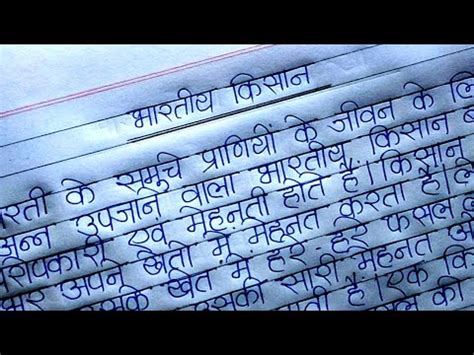 भारतीय किसान
रती के समुचे प्राणियों के जीवन के लि
अन्न उपजाने वाला भारतीय किसान
रोपकारी एवं मेहनती होते है। किसान
अपने खेती में मेहनत करता है।
उसके खेत में हर-हर फसल
उसकी सारी मेहनत
ती है। एक कि